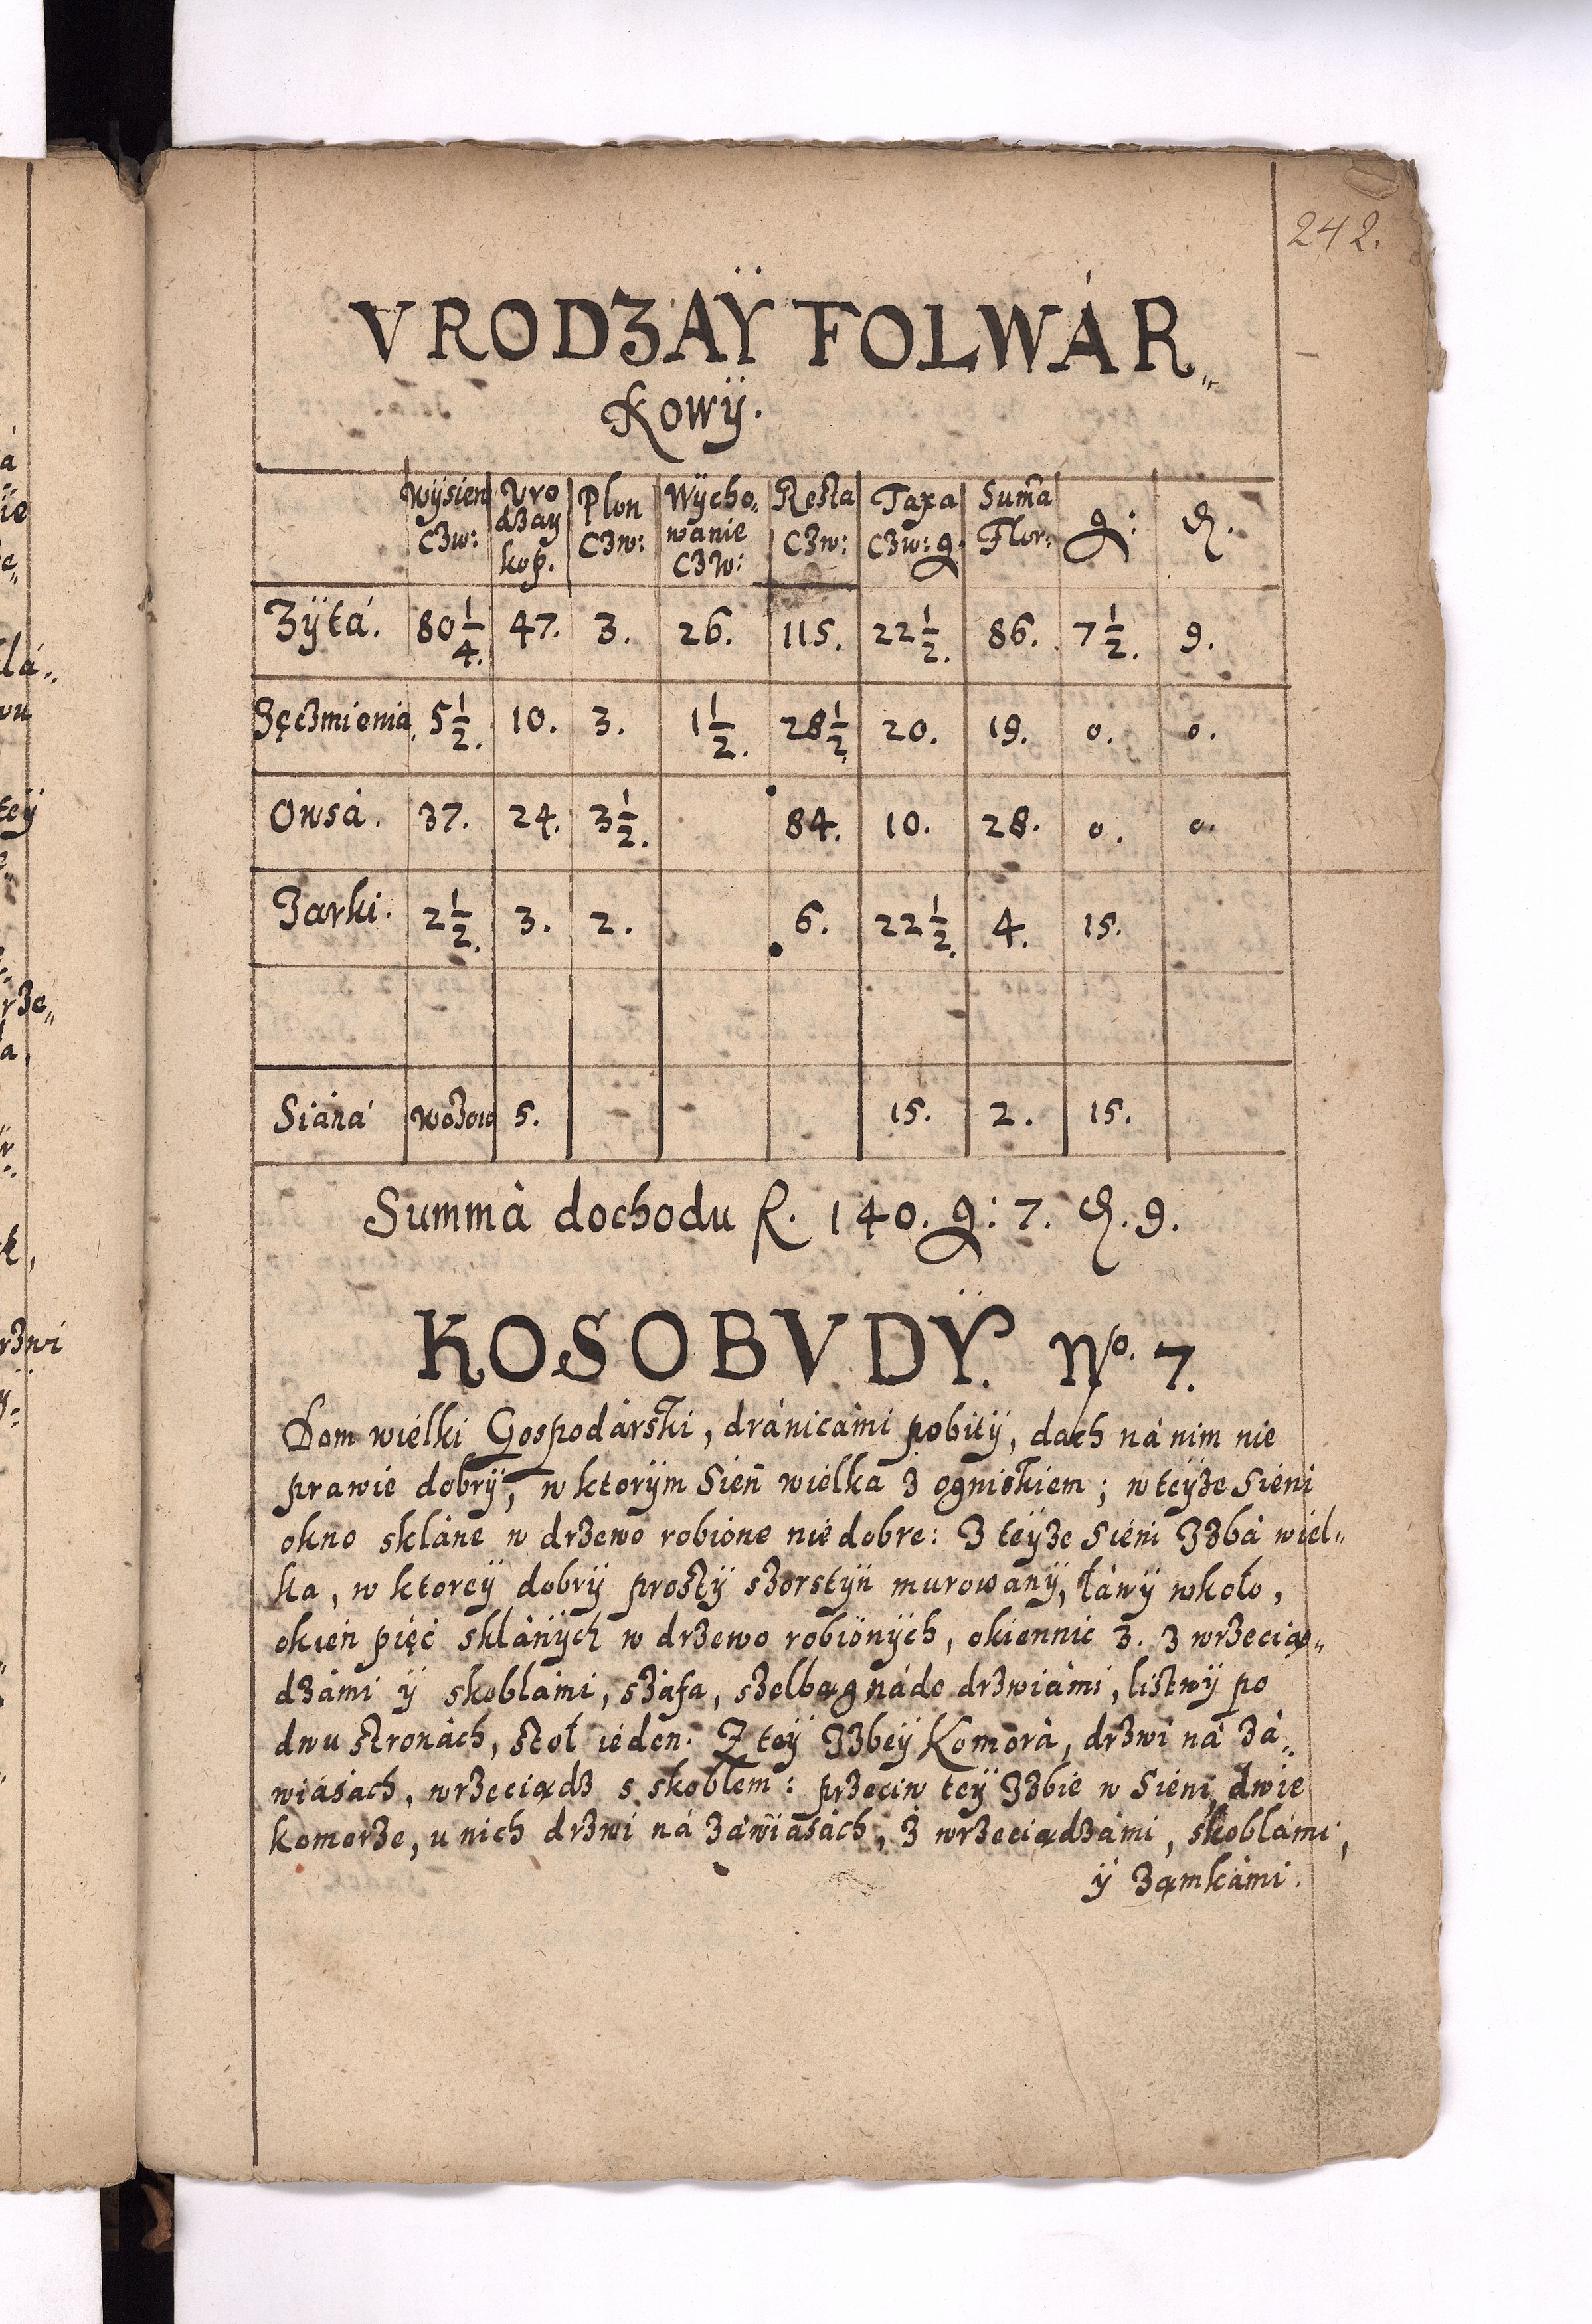 242.
VRODZAŸ FOLWÁR„
Kowÿ.
Wÿsiew Czw: | Vrodzay kop. | Plon Czw: | Wÿcho„wanie Czw: | Resta Czw: | Taxa Czw: g. | Suma Flor: | g: | d.
Zÿtá. | 80 1/4. | 47. | 3. | 26. | 115. | 22 1/2. | 86. | 7 1/2. | 9.
Jęczmienia. | 5 1/2. | 10. | 3. | 1 1/2. | 28 1/2. | 20. | 19. | 0. | 0.
Owsá. | 37. | 24. | 3 1/2. | 84. | 10. | 28. | 0. | 0.
Jarki. | 2 1/2. | 3. | 2. | 6. | 22 1/2. | 4. | 15.
Siáná | wozow | 5. | 15. | 2. | 15.
Summá dochodu fl. 140. g: 7. d. 9.
KOSOBVDŸ. No. 7.
Dom wielki Gospodárski, dránicámi pobitÿ, dach ná nim nie
prawie dobrÿ, w ktorÿm Sień wielka z ogniskiem; w teÿze Sieni
okno skláne w drzewo robione nie dobre: Z teÿze Sieni Jzbá wiel„
ka, w ktoreÿ dobrÿ prostÿ szorstÿn murowanÿ, łáwÿ wkoło,
okien pięć sklánÿch w drzewo robionÿch, okiennic 3. z wrzecią„
dzámi ÿ skoblámi, száfa, szelbąg nádo drzwiámi, listwÿ po
dwu stronách, stoł ieden. Z teÿ Jzbeÿ Komorá, drzwi ná zá„
wiásách, wrzeciądz s skoblem: przeciw teÿ Jzbie w Sieni, dwie
komorze, u nich drzwi ná záwiásách, z wrzeciądzámi, skoblámi,
ÿ zamkámi.